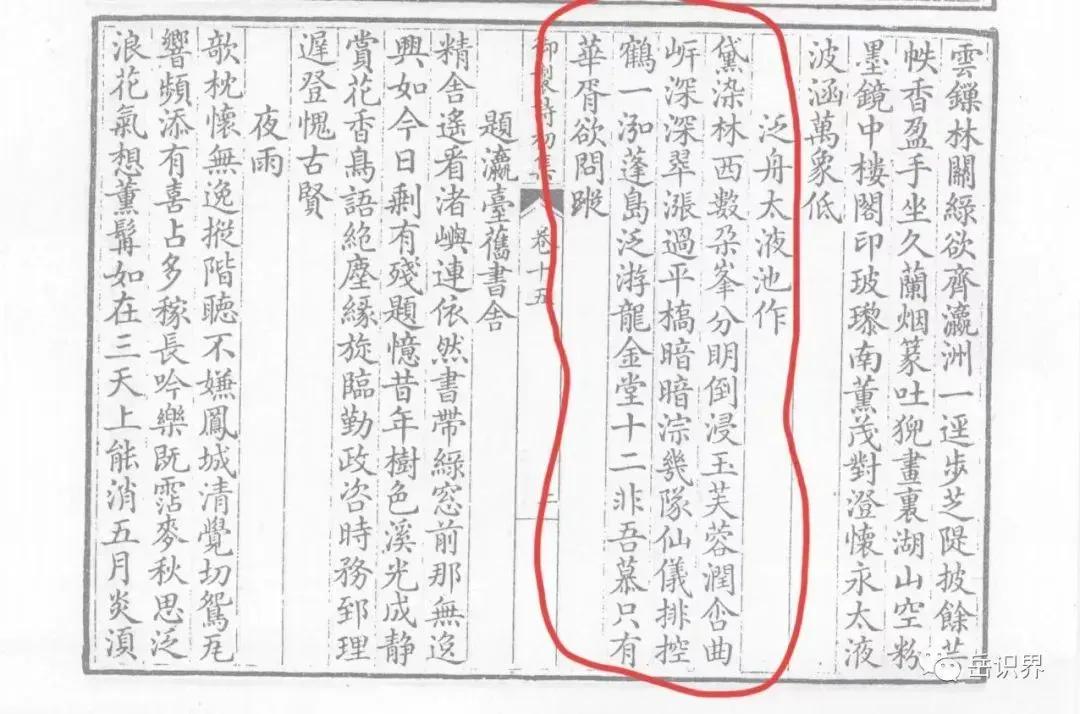 雲鏁林關綠欲齊瀛洲一逕步芝隄披餘芸
帙香盈手坐久蘭烟篆吐猊畫裏湖山空粉
墨鏡中樓閣印玻瓈南薰茂對澄懷永太液
波涵萬象低
泛舟太液池作
黛染林西數朶峯分明倒浸玉芙蓉潤含曲
㟁深深翠漲過平橋暗暗淙幾隊仙儀排控
鶴一泓蓬島泛游龍金堂十二非吾慕只有
華胥欲問蹤
御製詩初集 卷十五
題瀛臺舊書舍
精舍遙看渚嶼連依然書帶綠窓前那無逸
興如今日剩有殘題憶昔年樹色溪光成靜
賞花香鳥語絶塵緣旋臨勤政咨時務郅理
遲登愧古賢
夜雨
欹枕懷無逸挺階聽不嫌鳳城清覺切鴛瓦
響頻添有喜占多稼長吟樂既霑麥秋思泛
浪花氣想薰髯如在三天上能消五月炎湏
岳识界